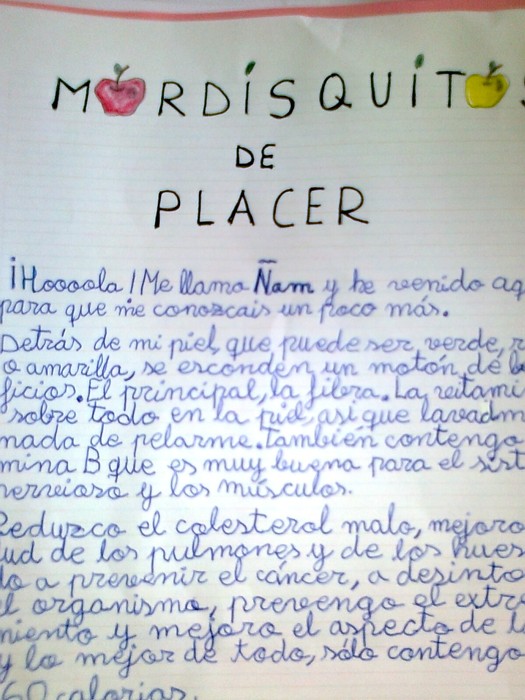 MORDISQUITOS
DE
PLACER
¡Hoooola! Me llamo Ñam y he venido aq
para que me conozcais un poco más.
Detrás de mi piel, que puede ser verde, r
o amarilla, se esconden un motón de be
ficios. El principal, la fibra. La vitami
sobre todo en la piel, así que lavadm
nada de pelarme. También contengo
mina B que es muy buena para el sist
nervioso y los músculos.
Reduzco el colesterol malo, mejoro
lud de los pulmones y de los hues
do a prevenir el cáncer, a desinto
el organismo, prevengo el extre
ñimiento y mejoro el aspecto de l
y lo mejor de todo, sólo contengo
60 calorías.